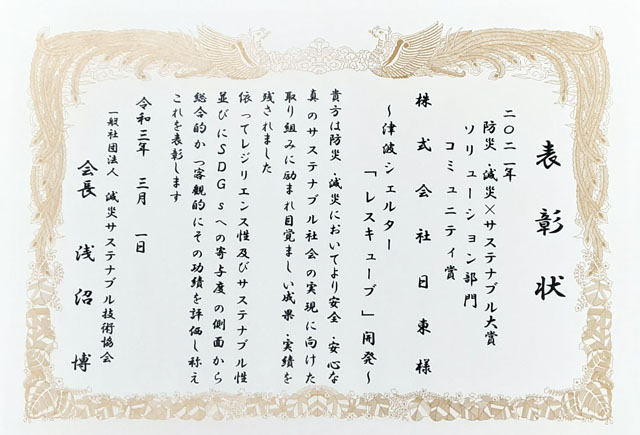 表彰状
二〇二一年
防災・減災×サステナブル大賞
ソリューション部門
コミュニティ賞
株式会社日東様
～津波シェルター
「レスキューブ」開発～
貴方は防災・減災においてより安全・安心な
真のサステナブル社会の実現に向けた
取り組みに励まれ目覚ましい成果・実績を
残されました
依ってレジリエンス性及びサステナブル性
並びにSDGsへの寄与度の側面から
総合的かつ客観的にその功績を評価し称え
これを表彰します
令和三年 三月 一日
一般社団法人 減災サステナブル技術協会
会長 浅沼 博